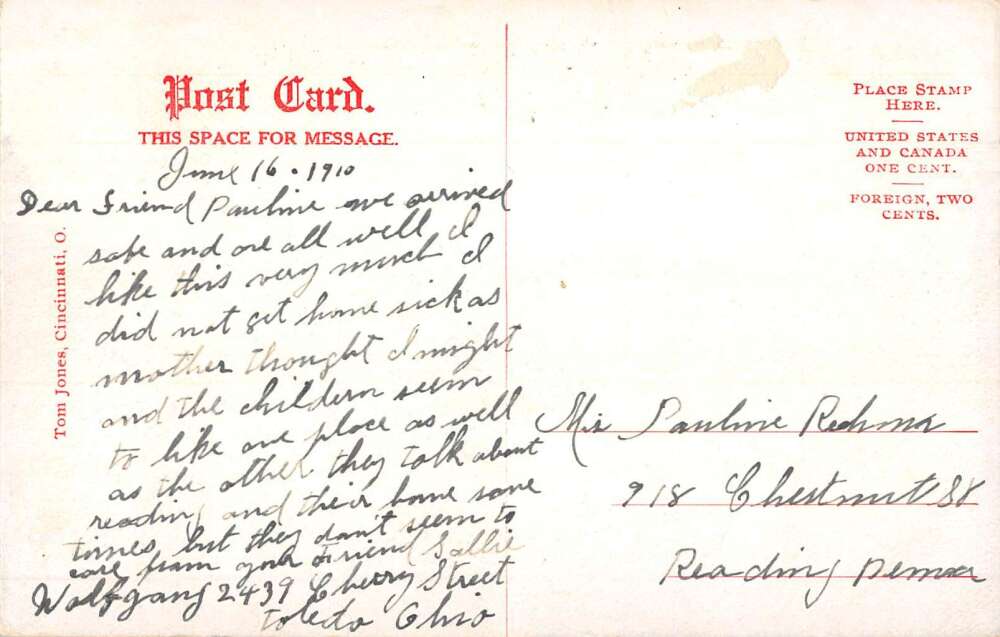 Post Card.
THIS SPACE FOR MESSAGE.
PLACE STAMP
HERE.
UNITED STATES
AND CANADA
ONE CENT.
FOREIGN, TWO
CENTS.
Tom Jones, Cincinnati, O.
June 16 . 1910
Dear Friend Pauline we arrived
safe and are all well I
like this very much I
did not get home sick as
mother thought I might
and the childern seem
to like one place as well
as the other they talk about
reading and their home some
times but they don't seem to
care from your Friend Sallie
Wolfgang 2439 Cherry Street
Toledo Ohio
Mis Pauline
918 Chestnut St
Reading